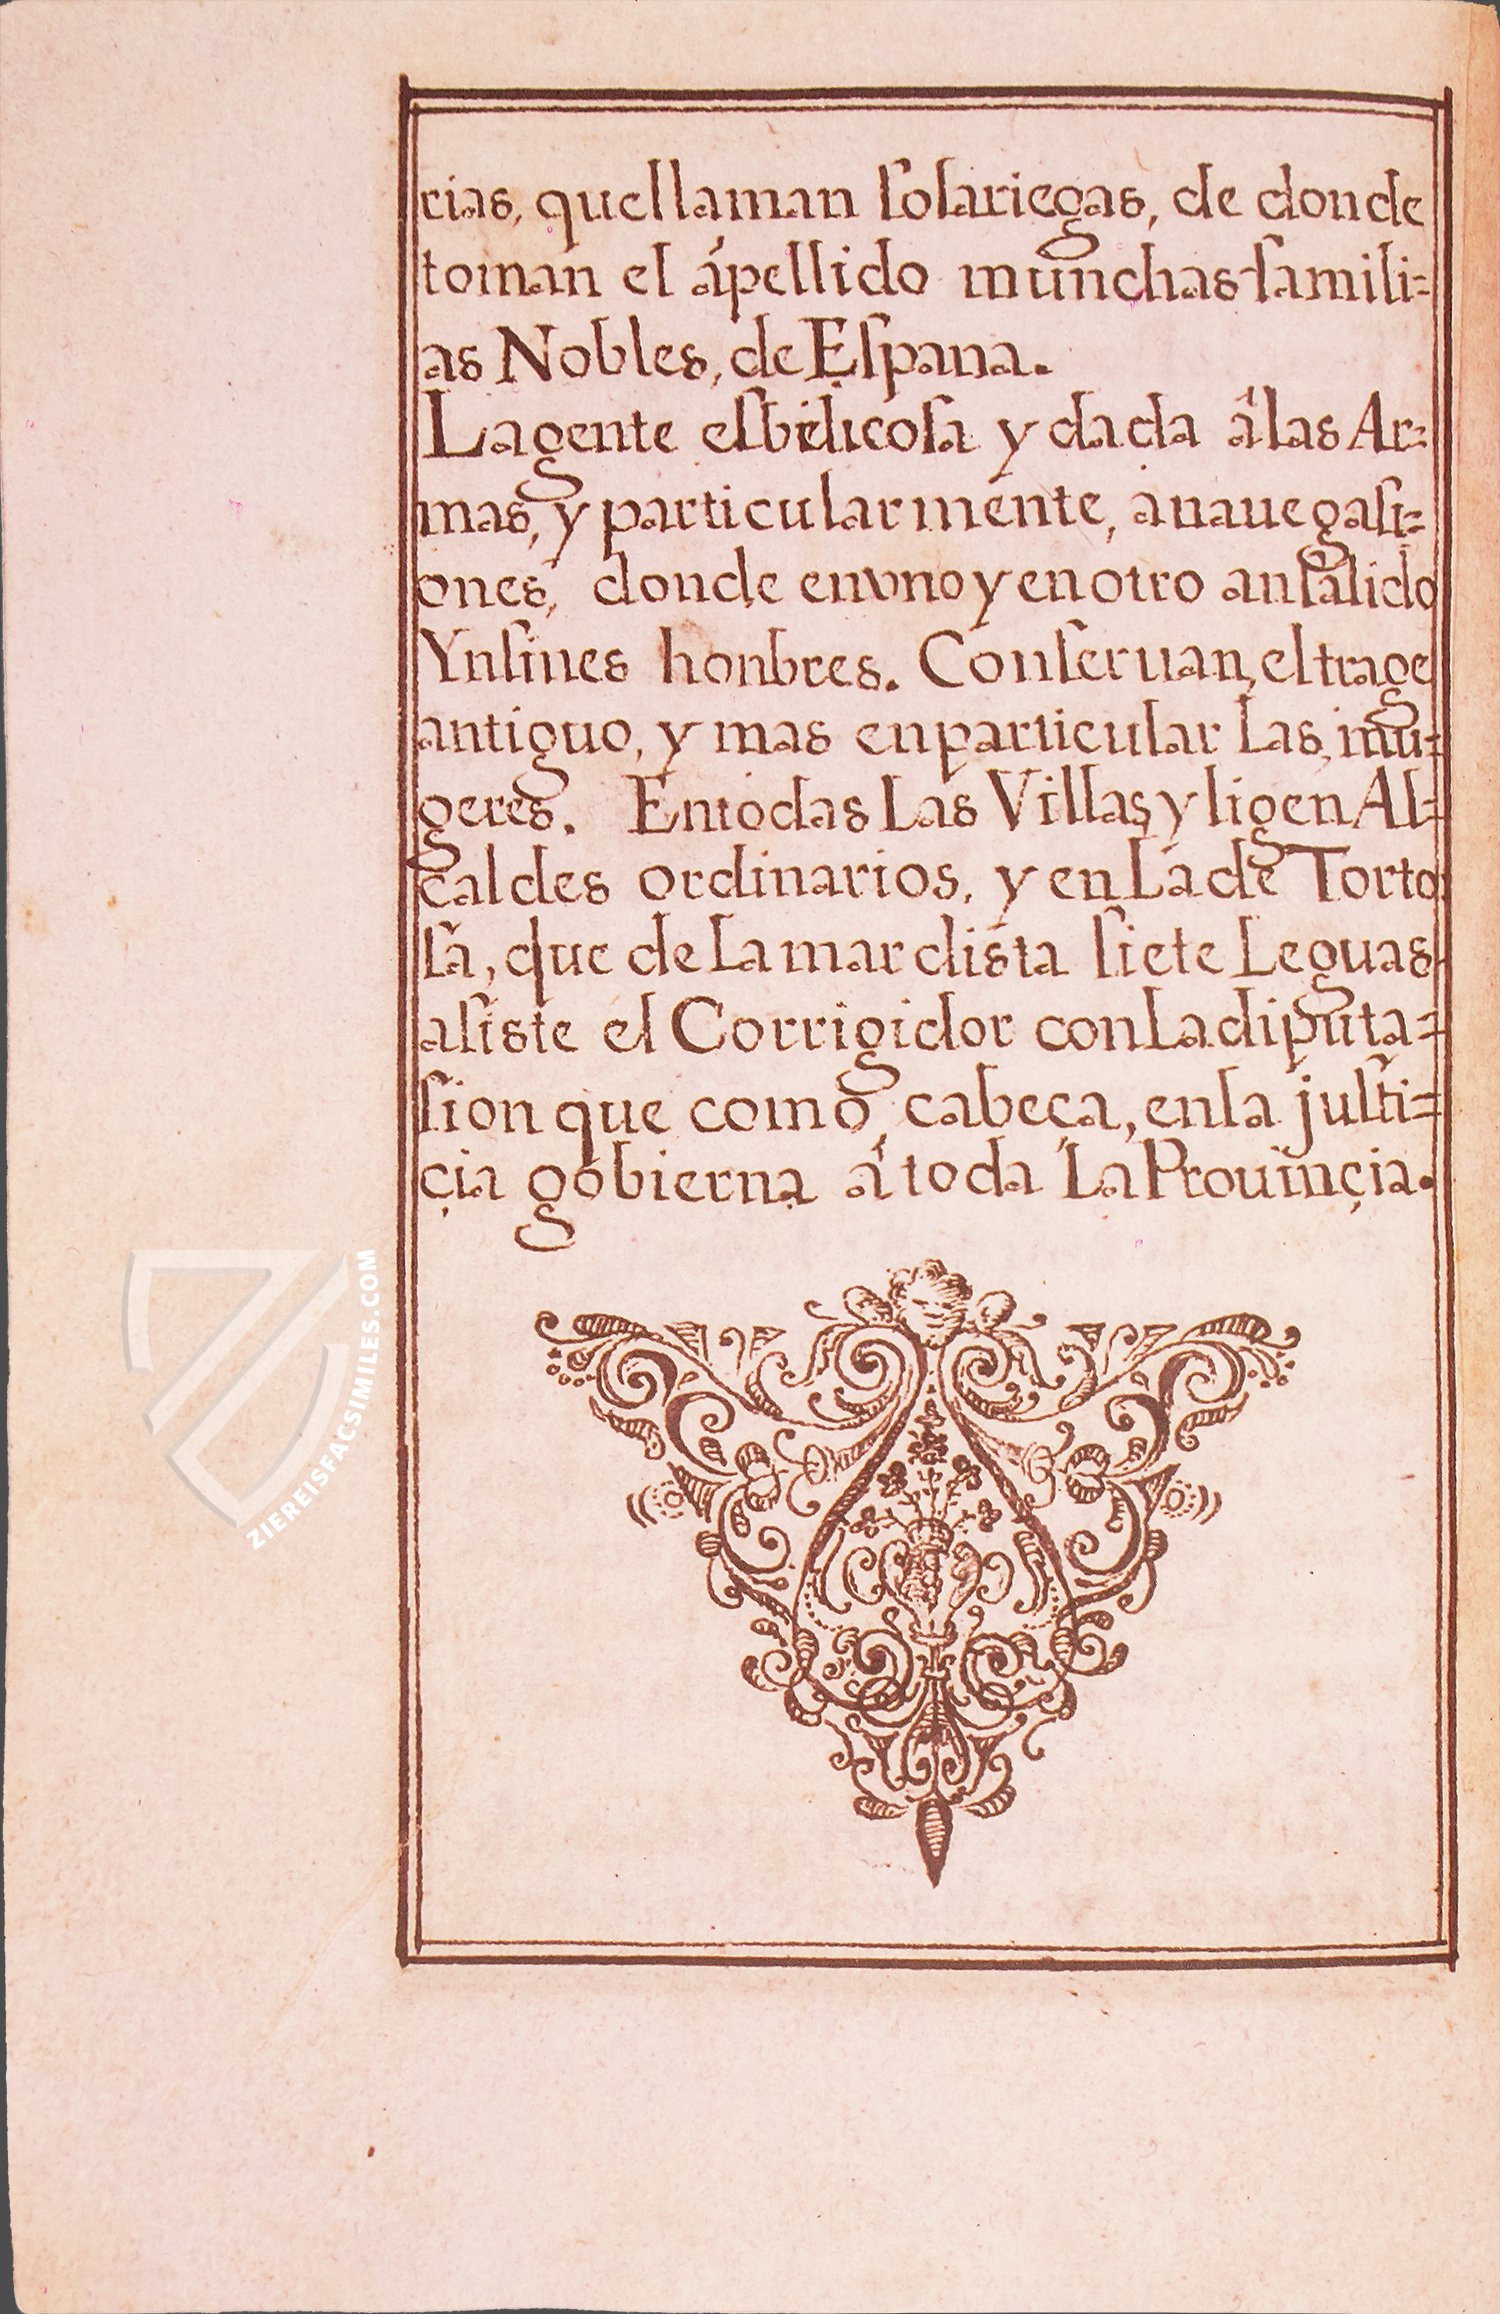 rias, quellaman ſolariegas, de donde
toman el ápellido munchas famili=
as Nobles, de Eſpana.
Lagente eſbelicoſa y dada á las Ar=
mas, y particularmente, anauegaſi=
ones, donde envno y en otro anſalido
Ynſines honbres. Conſeruan, el trage
antiguo, y mas enparticular las, mu=
geres. Entodas Las Villas, y ligen Al=
caldes ordinarios, y en La de Torto
ſa, que de La mar dista ſiete Leguas
aſiste el Corrigidor con La diputa=
ſion que como, cabeça, enla juſti=
çia gobierna á toda La Prouinçia.
ZIEREISFACSIMILES.COM